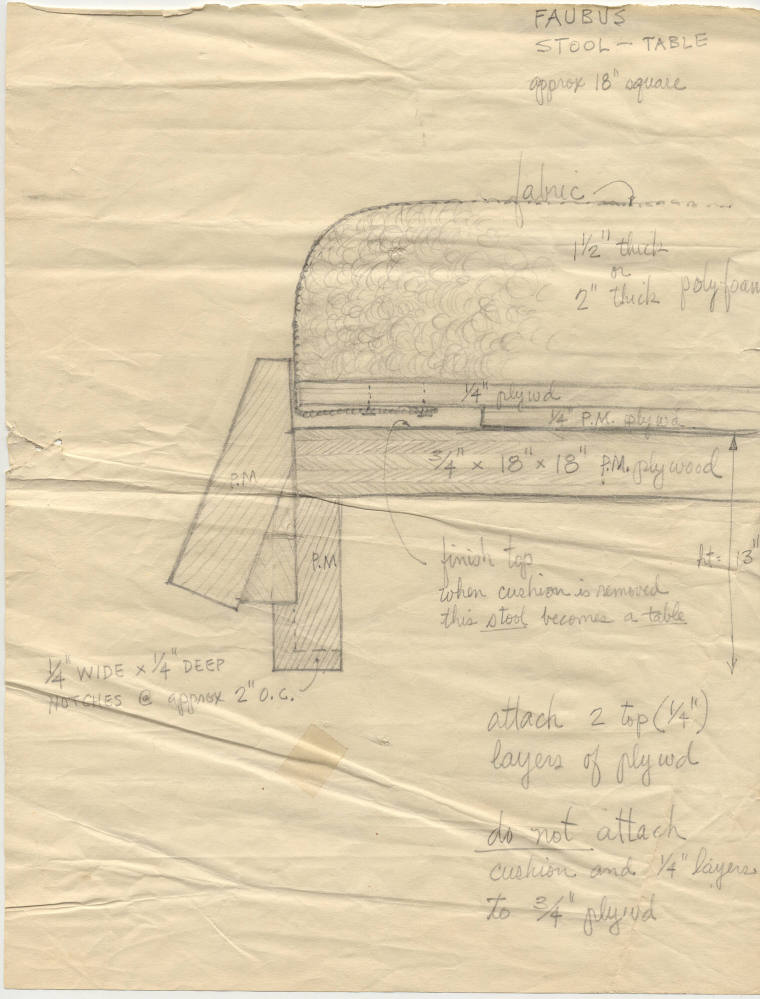 FAUBUS
STOOL — TABLE
approx 18" square
fabric
1 1/2" thick
or
2" thick polyfoam
1/4" plywd
1/4" P.M. plywd
3/4" x 18" x 18" P.M. plywood
P.M
P.M
finish top
when cushion is removed
this stool becomes a table
ht = 13"
1/4" WIDE x 1/4" DEEP
NOTCHES @ approx 2" O.C.
attach 2 top (1/4")
layers of plywd
do not attach
cushion and 1/4" layers
to 3/4" plywd